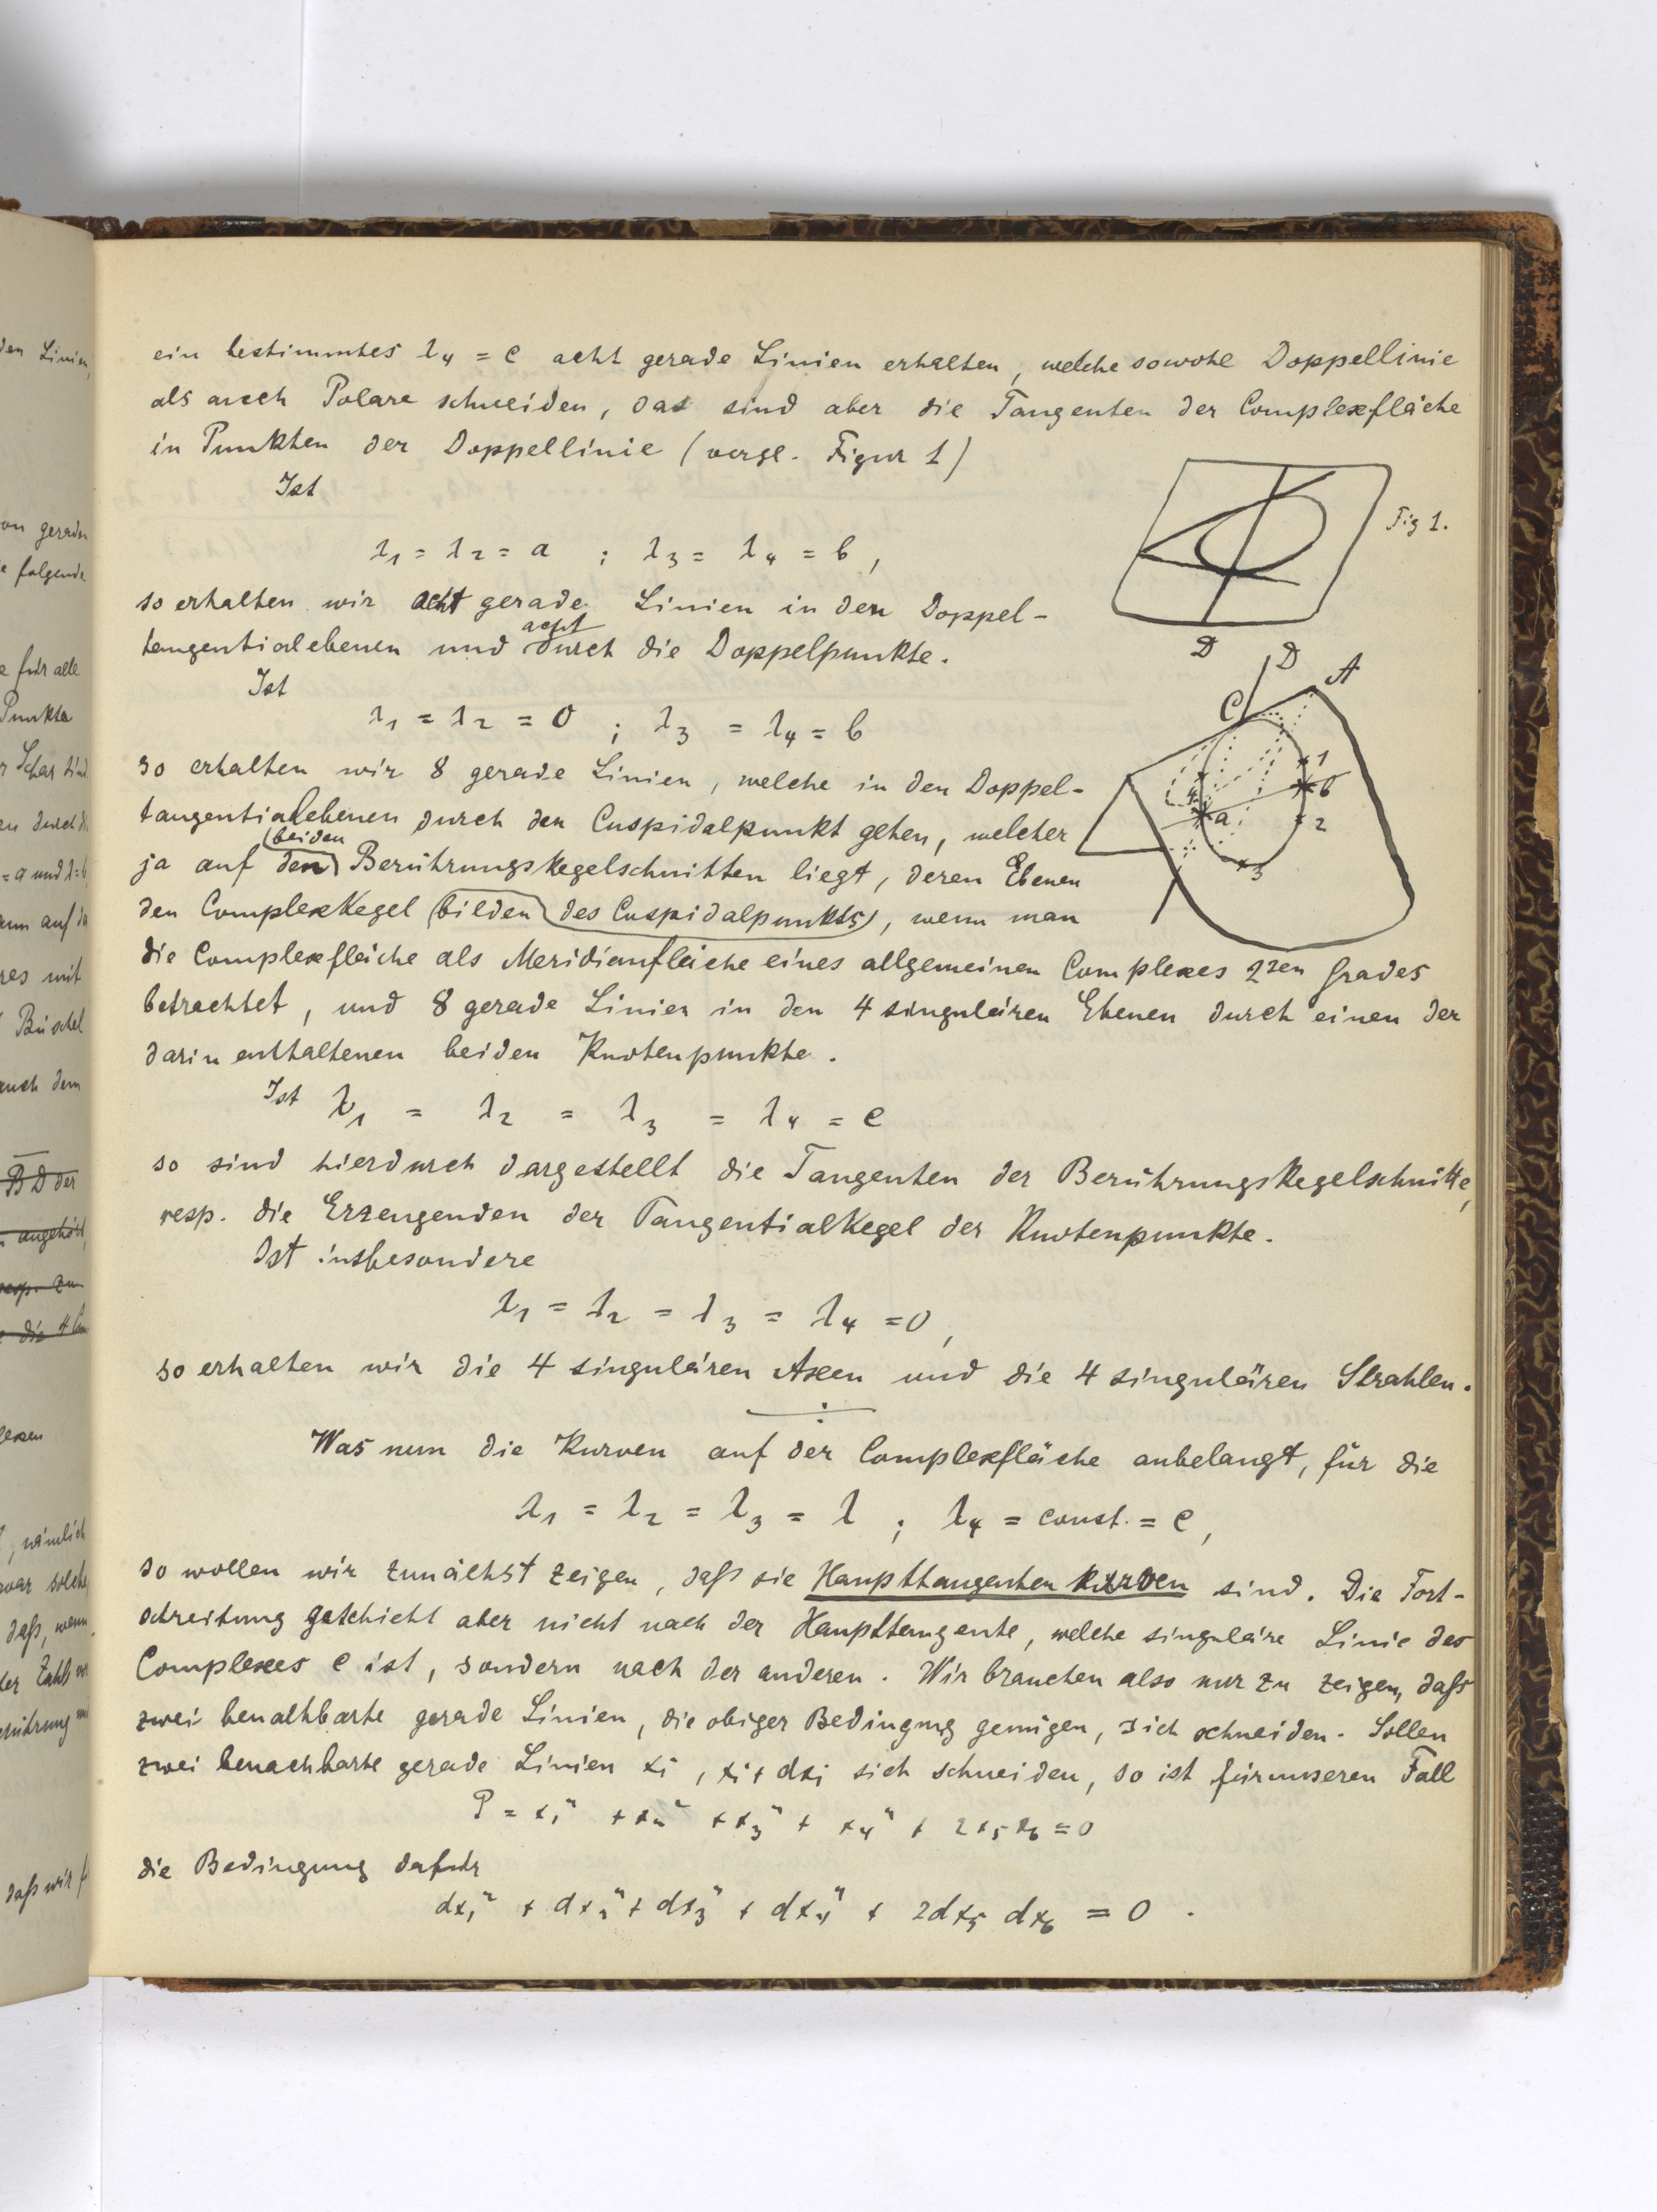 ein bestimmtes λ₄ = c acht gerade Linien erhalten, welche sowohl Doppellinie
als auch Polare schneiden, das sind aber die Tangenten der Complexfläche
in Punkten der Doppellinie (vergl. Figur 1)
Ist
Fig 1.
λ₁ = λ₂ = a ; λ₃ = λ₄ = b,
so erhalten wir acht gerade Linien in den Doppel-
tangentialebenen und acht durch die Doppelpunkte.
D
D
A
C
1
b
4
a
2
3
Ist
λ₁ = λ₂ = 0 ; λ₃ = λ₄ = b
so erhalten wir 8 gerade Linien, welche in den Doppel-
tangentialebenen durch den Cuspidalpunkt gehen, welcher
ja auf den (beiden) Berührungskegelschnitten liegt, deren Ebenen
den Complexkegel (bilden des Cuspidalpunkts), wenn man
die Complexfläche als Meridianfläche eines allgemeinen Complexes 2ten Grades
betrachtet, und 8 gerade Linien in den 4 singulären Ebenen durch einen der
darin enthaltenen beiden Knotenpunkte.
Ist λ₁ = λ₂ = λ₃ = λ₄ = c
so sind hierdurch dargestellt die Tangenten der Berührungskegelschnitte,
resp. die Erzeugenden der Tangentialkegel der Knotenpunkte.
Ist insbesondere
λ₁ = λ₂ = λ₃ = λ₄ = 0,
so erhalten wir die 4 singulären Axen und die 4 singulären Strahlen.
Was nun die Kurven auf der Complexfläche anbelangt, für die
λ₁ = λ₂ = λ₃ = λ ; λ₄ = const. = c,
so wollen wir zunächst zeigen, daß sie Haupttangentenkurven sind. Die Fort-
schreitung geschieht aber nicht nach der Haupttangente, welche singuläre Linie des
Complexes c ist, sondern nach der anderen. Wir brauchen also nur zu zeigen, daß
zwei benachbarte gerade Linien, die obiger Bedingung genügen, sich schneiden. Sollen
zwei benachbarte gerade Linien xi, xi + dxi sich schneiden, so ist für unseren Fall
P = x₁² + x₂² + x₃² + x₄² + 2x₅x₆ = 0
die Bedingung dafür
dx₁² + dx₂² + dx₃² + dx₄² + 2dx₅ dx₆ = 0.